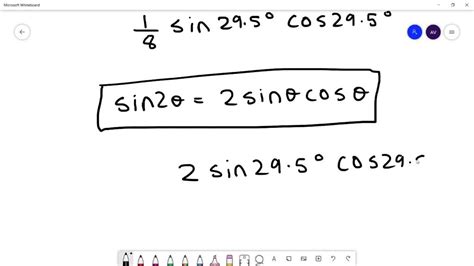 Microsoft Whiteboard
AV
1/8 sin 29.5° cos 29.5°
sin2θ = 2 sinθ cosθ
2 sin 29.5° cos 29.